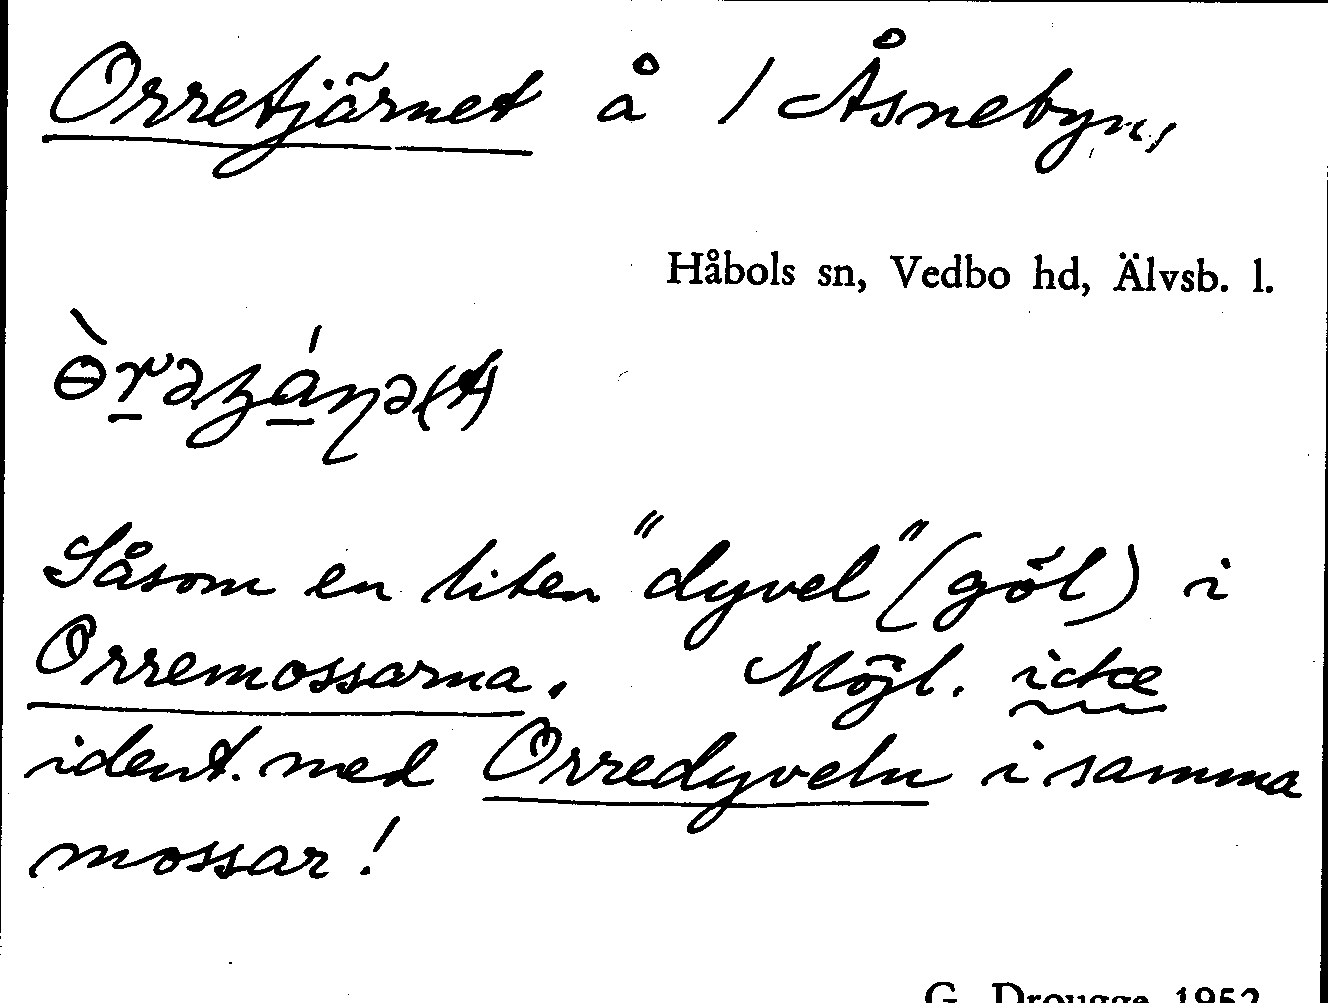 Orretjärnet å 1 Åsnebyn,
Håbols sn, Vedbo hd, Älvsb. l.
Såsom en liten "dyvel" (göl) i
Orremossarna. Möjl. icke
ident. med Orredyveln i samma
mossar!
G. Drougge 1952